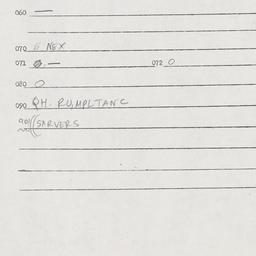 060 —
070 E NEX
071 0. — 072 0
080 0
090 PH. RUMPLTANC
901 ((SARVERS